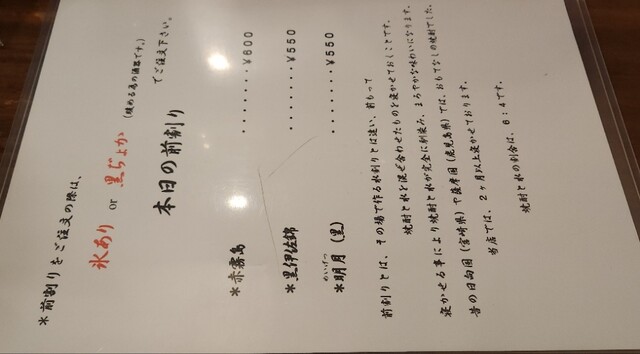 ＊前割りをご注文の際は、
氷あり or 黒ぢょか (温める為の酒器です。)
でご注文下さい。
本日の前割り
＊赤霧島 ・・・・・・・・¥600
＊黒伊佐錦 ・・・・・・・¥550
めいげつ
＊明月（黒） ・・・・・・・¥550
前割りとは、その場で作る水割りとは違い、前もって
焼酎と水を混ぜ合わせたものを寝かせておくことです。
寝かせる事により焼酎と水が完全に馴染み、まろやかな味わいになります。
昔の日向国（宮崎県）や薩摩国（鹿児島県）では、おもてなしの焼酎でした。
当店では、2ヶ月以上寝かせております。
焼酎と水の割合は、6：4です。